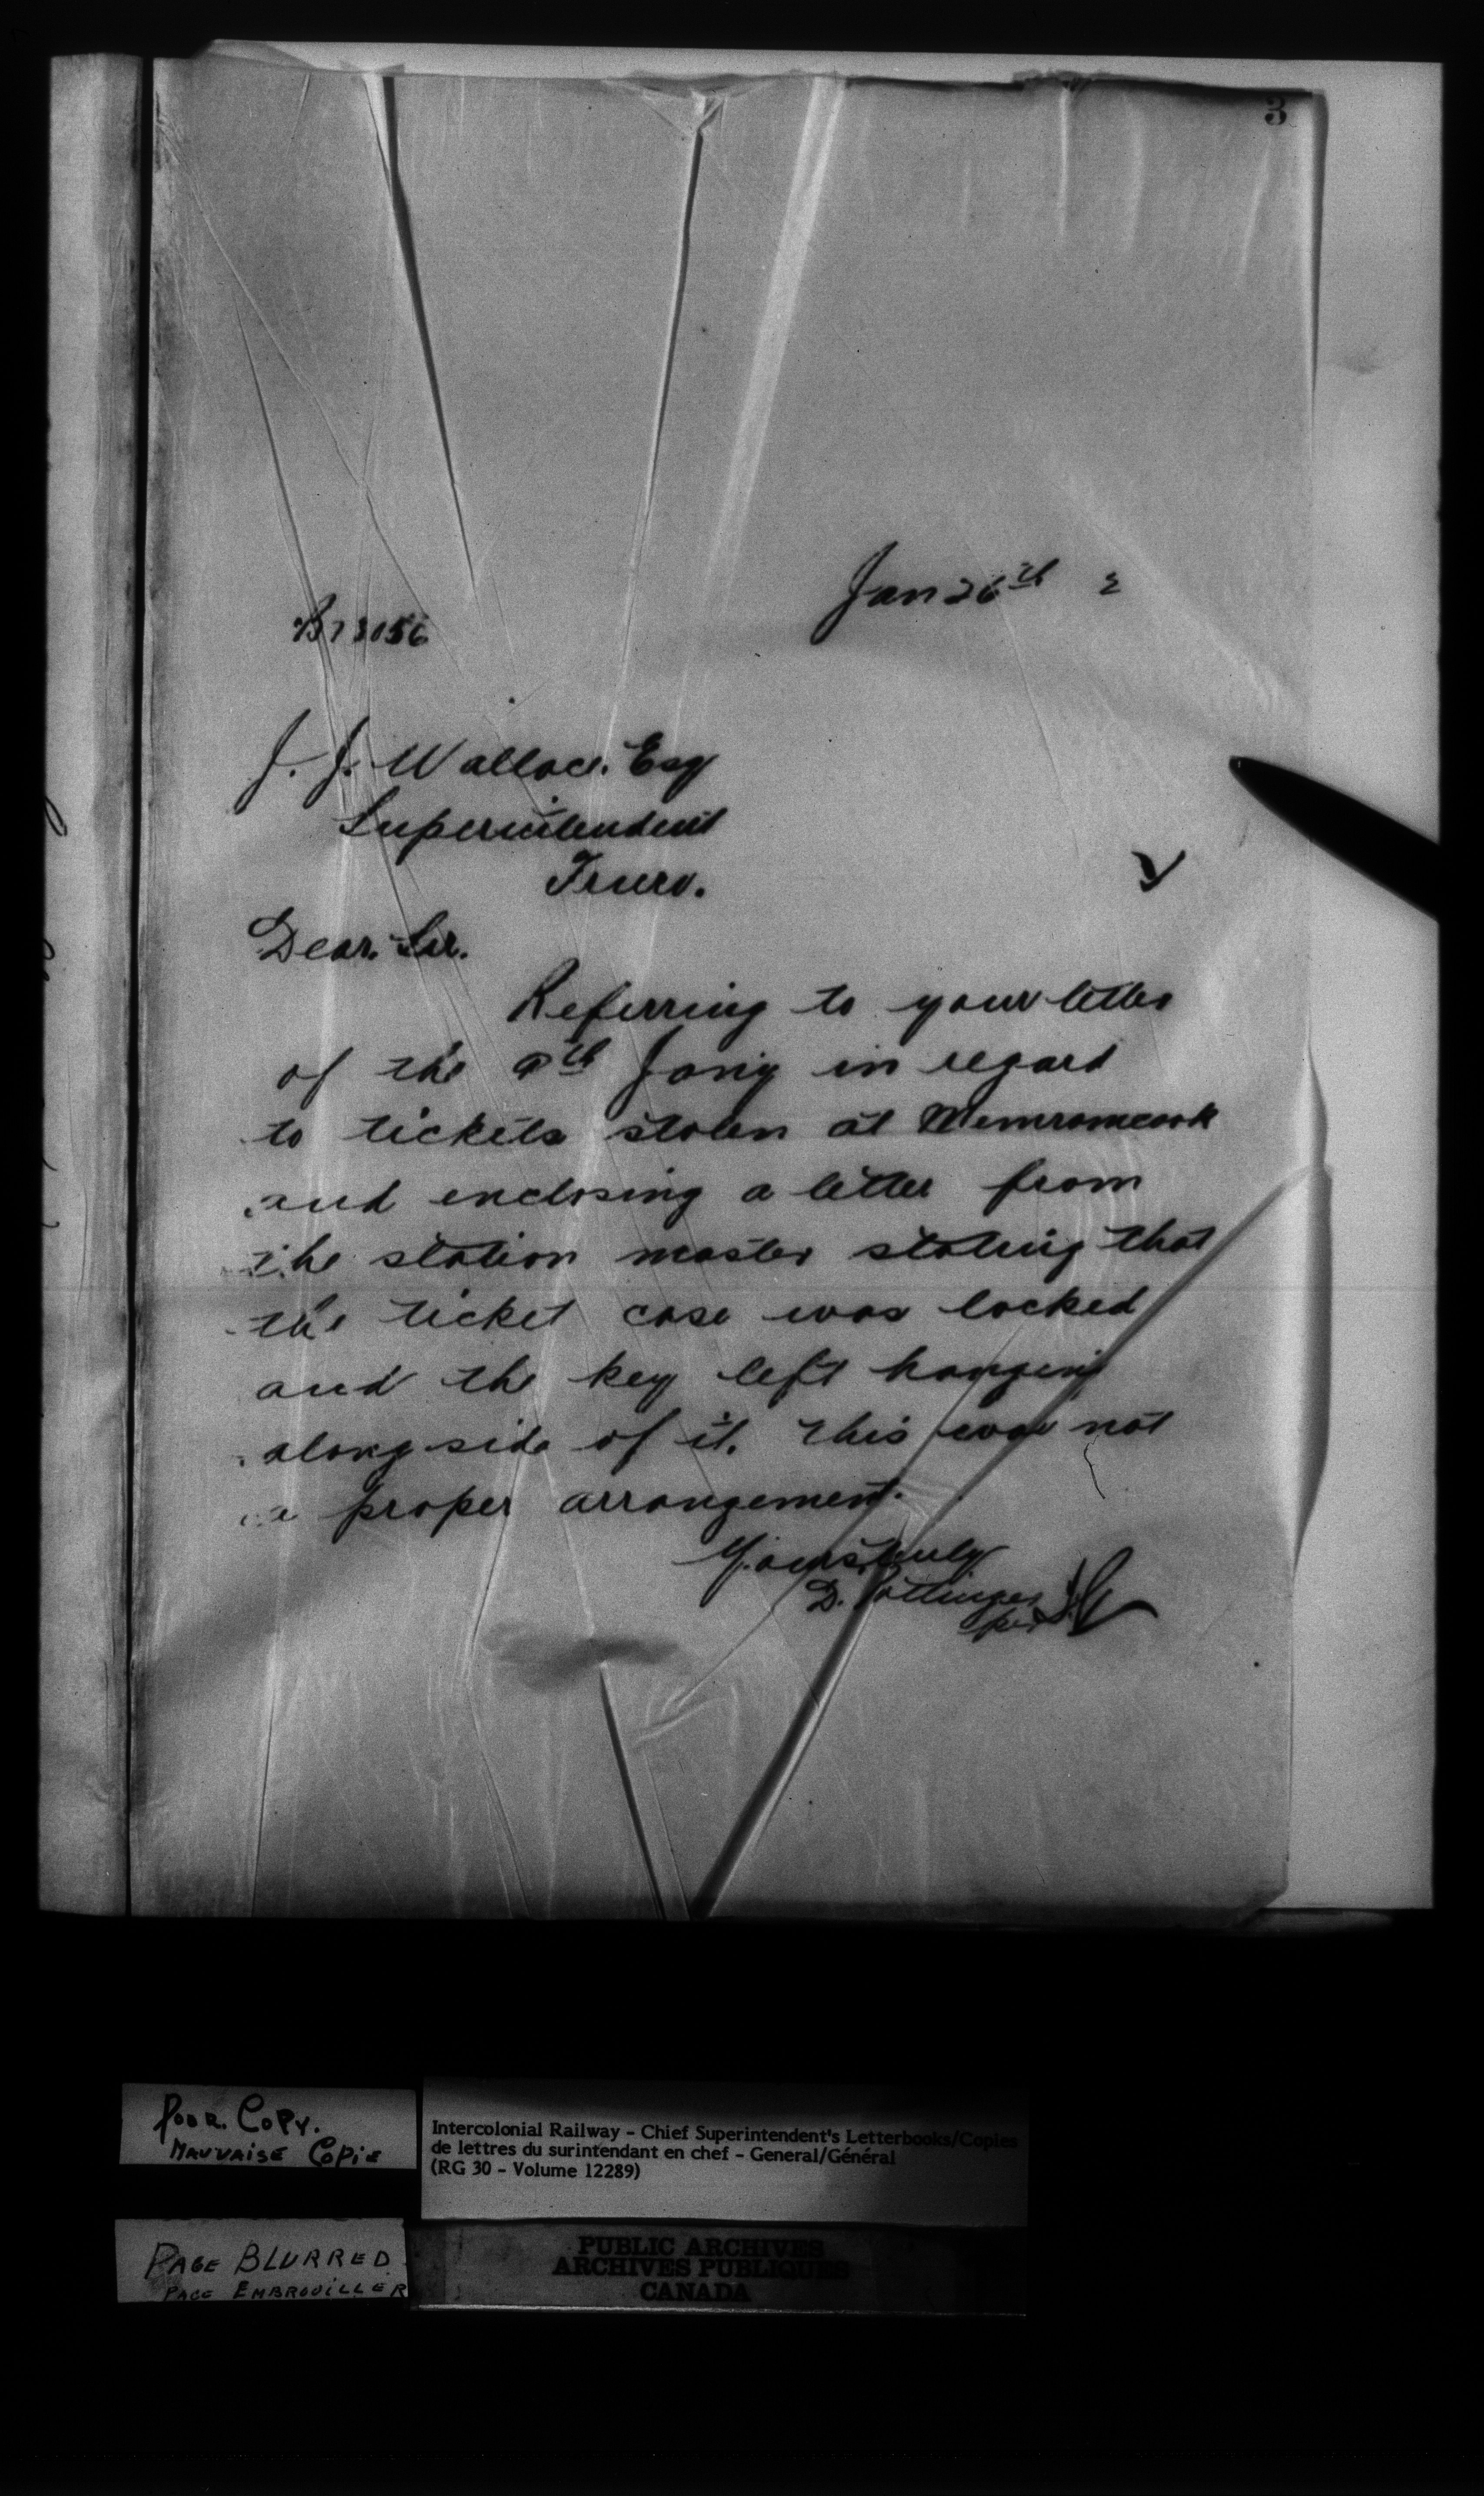 3
Jan 26th 2
B73056
J. J. Wallace. Esq
Superintendent
Truro.
Dear Sir.
Referring to your letter
of the 9th Jany in regard
to tickets stolen at Memramcook
and enclosing a letter from
the station master stating that
the ticket case was locked
and the key left hanging
alongside of it. this was not
a proper arrangement.
Yours truly
D. Pottinger
per
Poor Copy.
Mauvaise Copie
Intercolonial Railway - Chief Superintendent's Letterbooks/Copies
de lettres du surintendant en chef - General/Général
(RG 30 - Volume 12289)
PAGE BLURRED
PAGE EMBROUILLER
PUBLIC ARCHIVES
ARCHIVES PUBLIQUES
CANADA